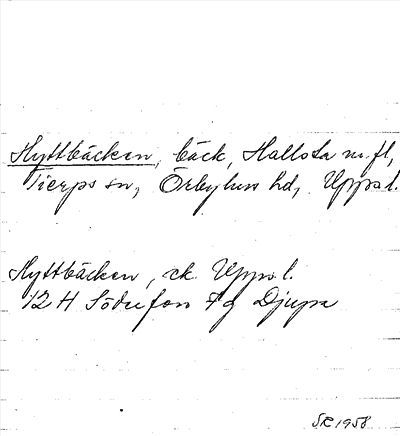 Hyttbäcken, bäck, Hallsta m.fl,
Tierps sn, Örbyhus hd, Uppsl.
Hyttbäcken, ek. Uppsl.
12 H Söderfors 7 g Djupa
SR 1958